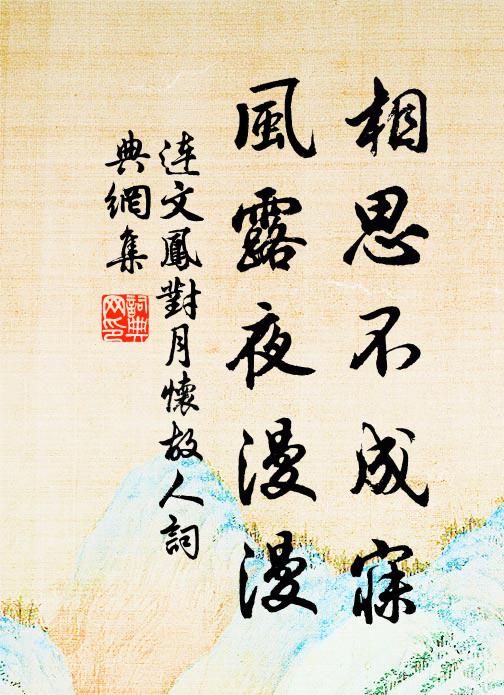 相思不成寐
風露夜漫漫
連文鳳對月懷故人詞
典網集
詞典網印